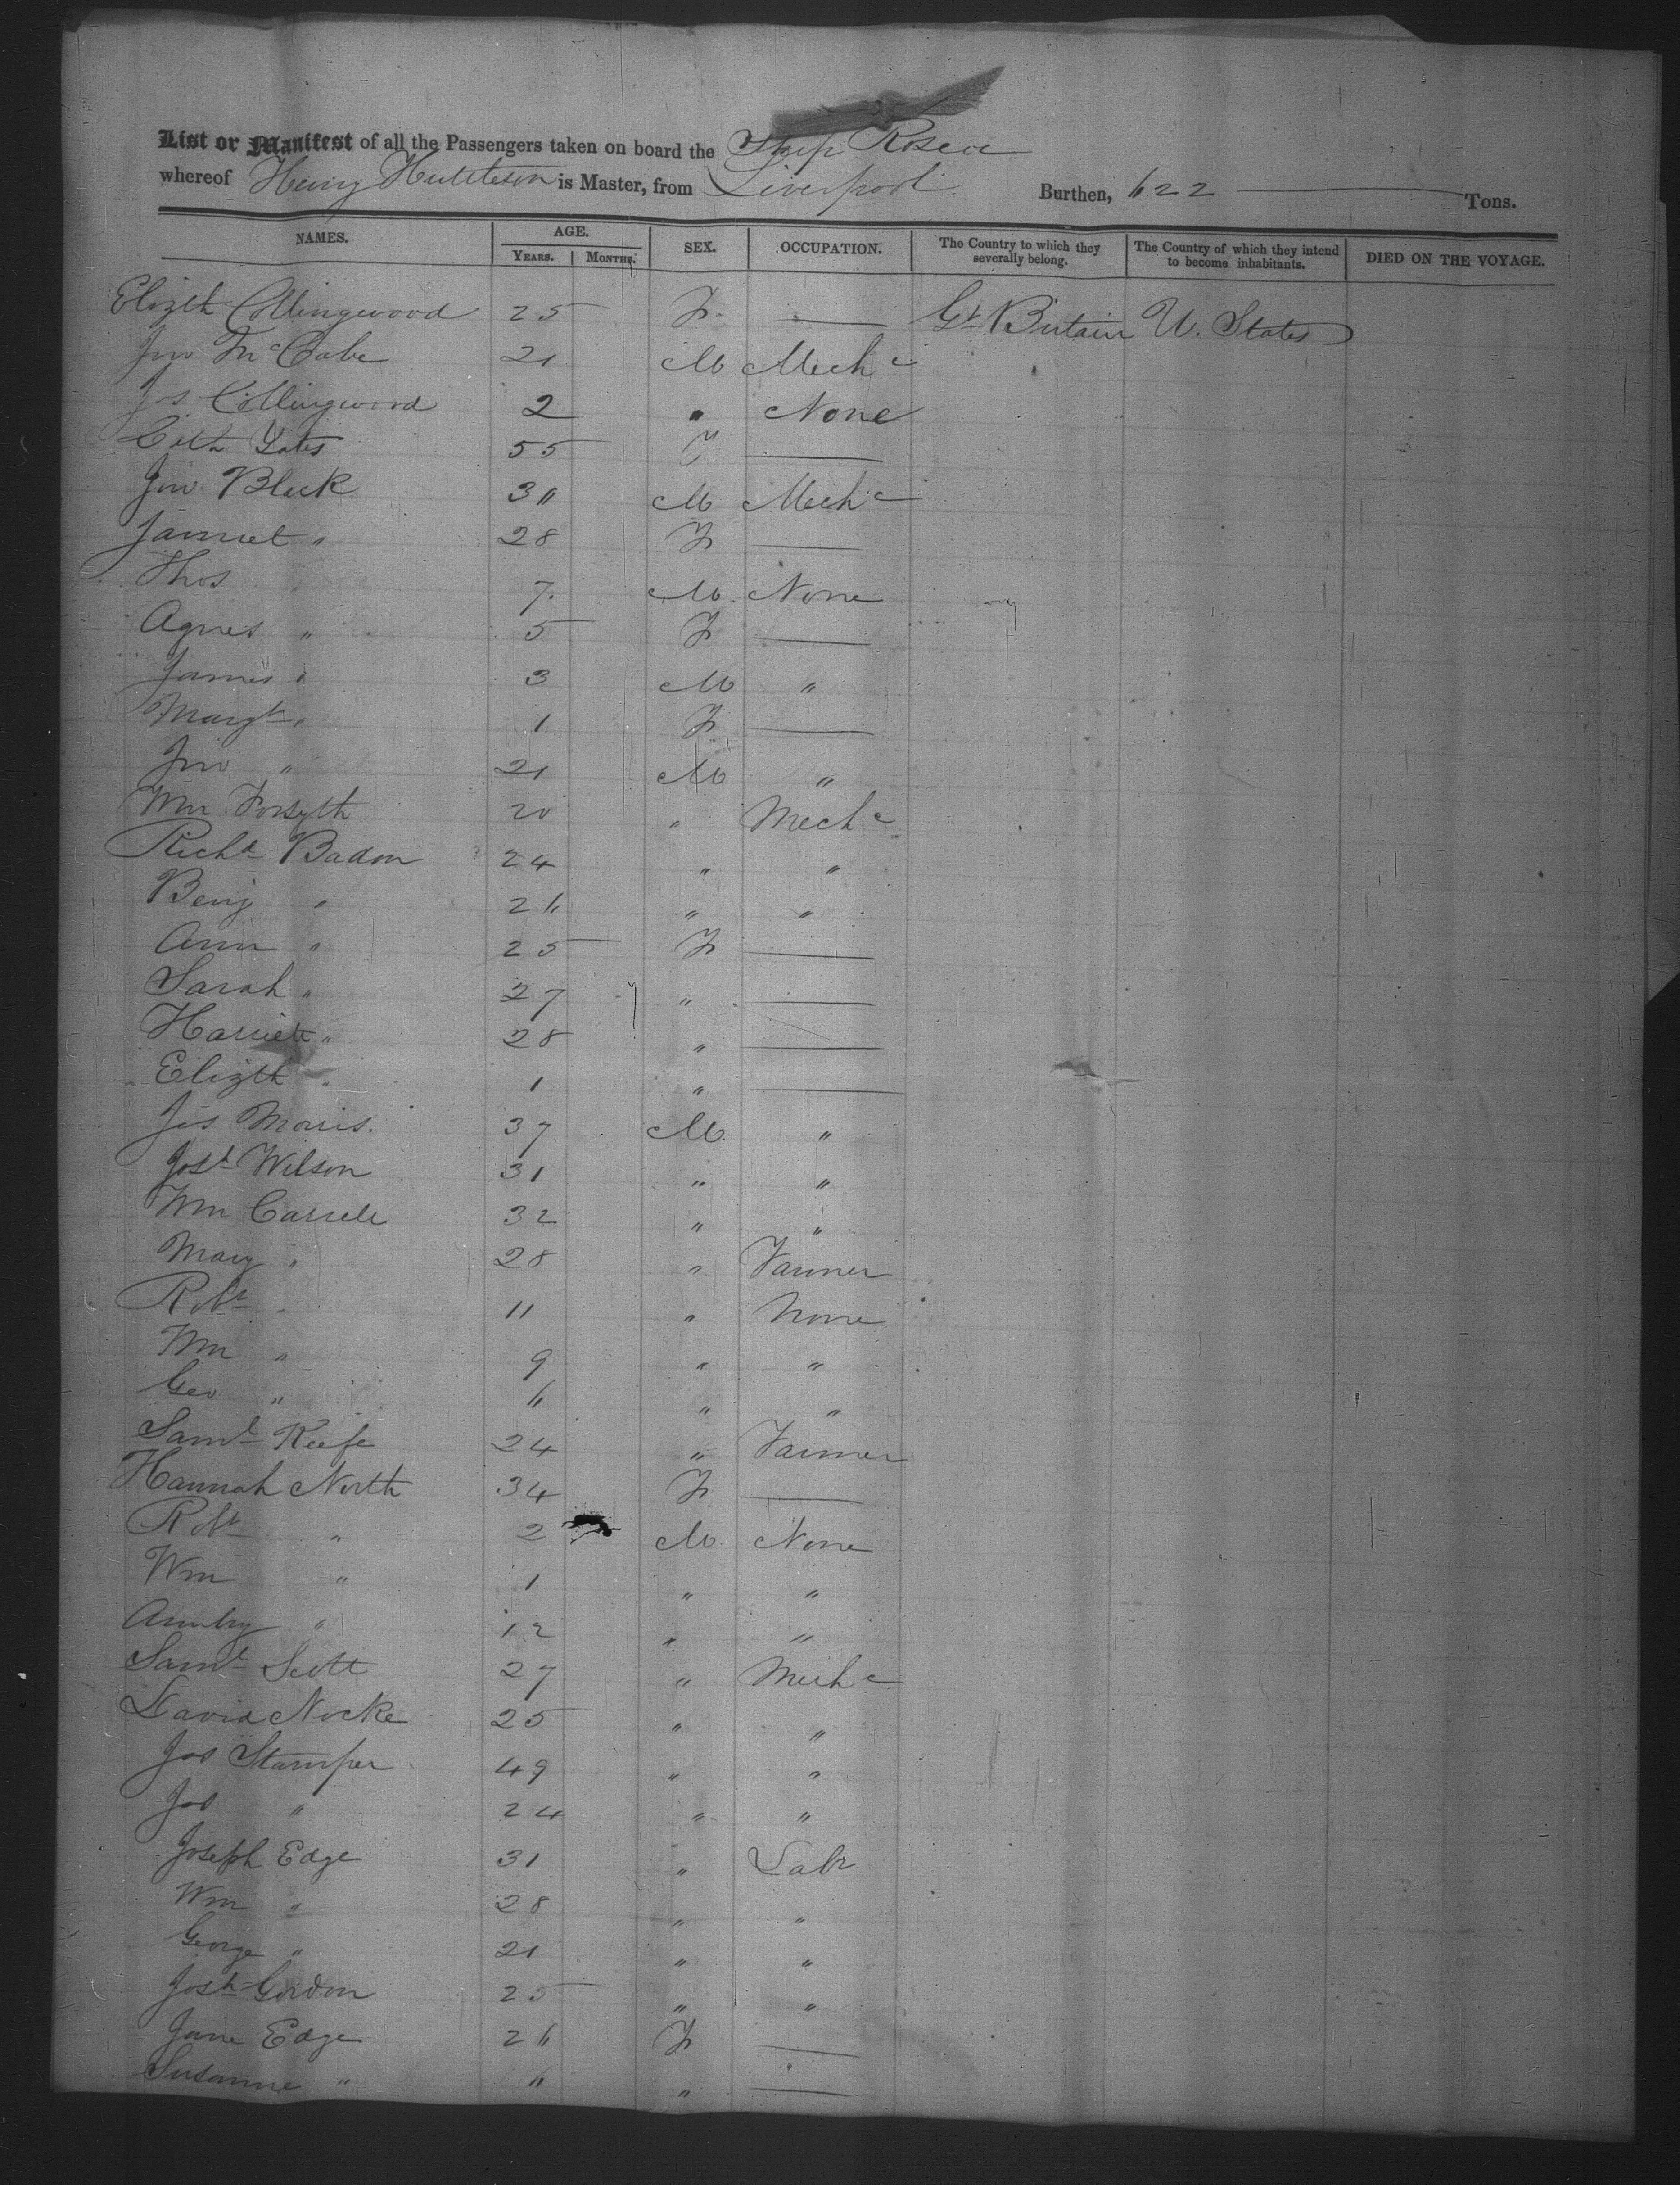 List or Manifest of all the Passengers taken on board the Ship Roscoe
whereof Henry Huttleson is Master, from Liverpool Burthen, 622 Tons.
NAMES. AGE. YEARS. MONTHS. SEX. OCCUPATION. The Country to which they severally belong. The Country of which they intend to become inhabitants. DIED ON THE VOYAGE.
Elizth Collingwood 25 F. — Gt Britain U. States
Jno McCabe 21 M Mechc
Jos Collingwood 2 " None
Yates 55 F —
Jno Black 30 M Mechc
" 28 F —
Thos 7 M None
Agnes " 5 F —
James " 3 M "
Margt " 1 F —
Jno " 21 M "
Wm Forsyth 20 " Mechc
Richd Badon 24 " "
Benj " 26 " "
Ann " 25 F —
Sarah " 27 " —
Harriett " 28 " —
Elizth " 1 " —
Jos Morris. 37 M "
Josh Wilson 31 " "
Wm 32 " "
Mary " 28 " Farmer
Robt " 11 " None
Wm " 9 " "
Geo " 6 " "
Saml Keefe 24 " Farmer
Hannah North 34 F —
Robt " 2 M None
Wm " 1 " "
" 12 " "
Saml Scott 27 " Mechc
David Nocke 25 " "
Jos Stamper 49 " "
Jos " 24 " "
Joseph Edge 31 " Labr
Wm " 28 " "
George " 21 " "
Josh Gordon 25 " "
Jane Edge 26 F —
Susanne " " " —